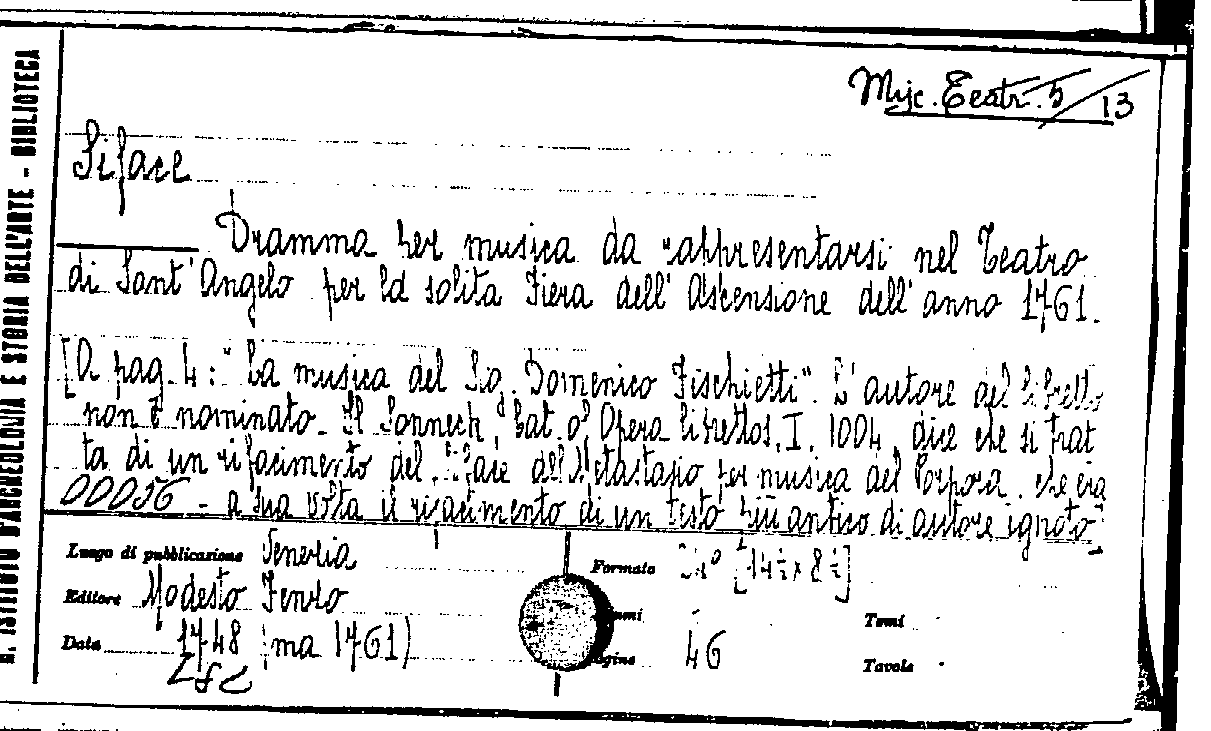 R. ISTITUTO D'ARCHEOLOGIA E STORIA DELL'ARTE - BIBLIOTECA
Misc. Teatr. 5/13
Siface
Dramma per musica da rappresentarsi nel Teatro
di Sant'Angelo per la solita Fiera dell'Ascensione dell'anno 1761.
[A pag. 4: "La musica del Sig. Domenico Fischietti". L'autore del libretto
non è nominato. Il Sonnech, Cat. of Opera librettos, I, 1004, dice che si trat
ta di un rifacimento del Siface del Metastasio per musica del Porpora, che era
00056 - a sua volta il rifacimento di un testo più antico di autore ignoto]
Luogo di pubblicazione Venezia
Formato 24° [14½ x 8½]
Editore Modesto Fenzo
Tomi
Data 1748 (ma 1761)
Pagine 46
Tavole